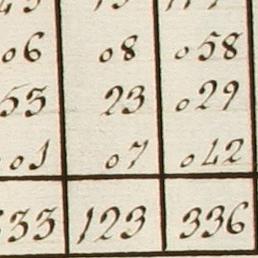 06 08 058
53 23 029
01 07 042
33 123 336